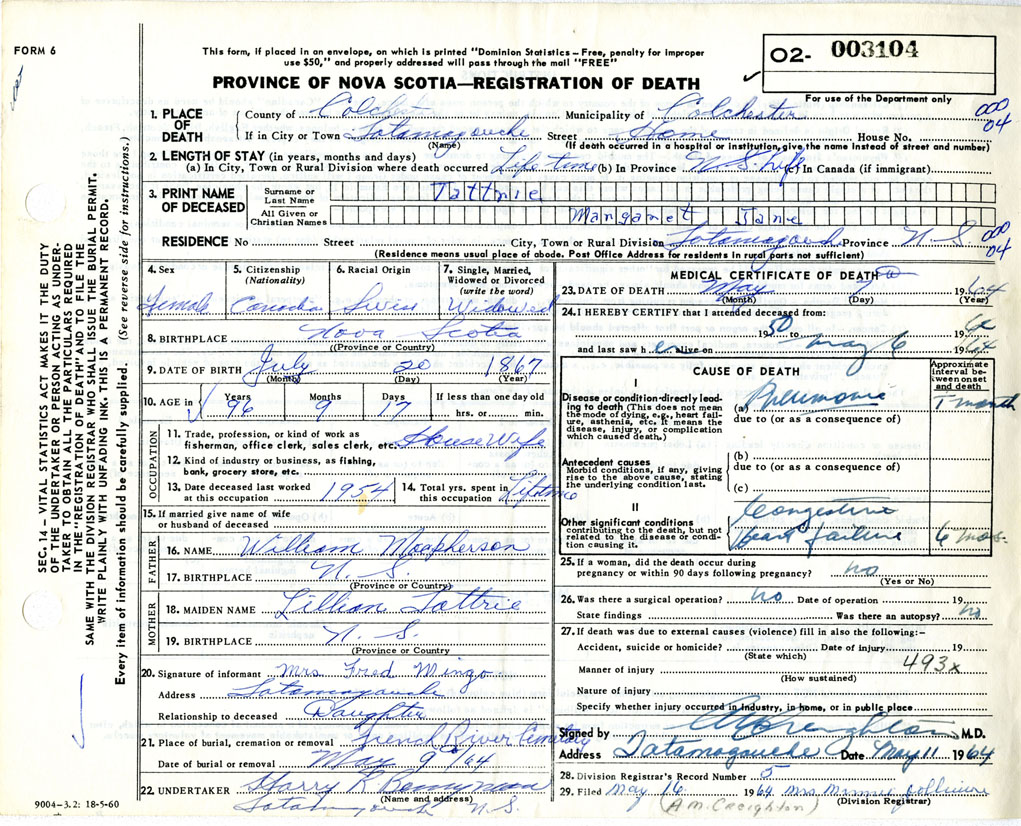 FORM 6
This form, if placed in an envelope, on which is printed "Dominion Statistics – Free, penalty for improper
use $50," and properly addressed will pass through the mail "FREE"
O2- 003104
PROVINCE OF NOVA SCOTIA—REGISTRATION OF DEATH
For use of the Department only
1. PLACE OF DEATH
County of Colchester Municipality of Colchester
000
04
If in City or Town Tatamagouche Street Home House No.
(Name) (If death occurred in a hospital or institution, give the name instead of street and number)
2. LENGTH OF STAY (in years, months and days)
(a) In City, Town or Rural Division where death occurred Life time (b) In Province N.S. Life (c) In Canada (if immigrant)
3. PRINT NAME OF DECEASED
Surname or Last Name Tattrie
All Given or Christian Names Margaret Jane
RESIDENCE No Street City, Town or Rural Division Tatamagouche Province N.S.
000
04
(Residence means usual place of abode. Post Office Address for residents in rural parts not sufficient)
4. Sex
Female
5. Citizenship (Nationality)
Canadian
6. Racial Origin
Swiss
7. Single, Married, Widowed or Divorced (write the word)
Widowed
8. BIRTHPLACE Nova Scotia
(Province or Country)
9. DATE OF BIRTH July 20 1867
(Month) (Day) (Year)
10. AGE in Years Months Days If less than one day old
96 9 17 hrs. or min.
OCCUPATION
11. Trade, profession, or kind of work as
fisherman, office clerk, sales clerk, etc. House Wife
12. Kind of industry or business, as fishing,
bank, grocery store, etc.
13. Date deceased last worked
at this occupation 1954
14. Total yrs. spent in
this occupation Lifetime
15. If married give name of wife
or husband of deceased
FATHER
16. NAME William Macpherson
17. BIRTHPLACE N.S.
(Province or Country)
MOTHER
18. MAIDEN NAME Lillian Tattrie
19. BIRTHPLACE N.S.
(Province or Country)
20. Signature of informant Mrs Fred Mingo
Address Tatamagouche
Relationship to deceased Daughter
21. Place of burial, cremation or removal French River Cemetery
Date of burial or removal May 9th/64
22. UNDERTAKER Harry R
(Name and address)
Tatamagouche N.S.
MEDICAL CERTIFICATE OF DEATH
23. DATE OF DEATH May 7 1964
(Month) (Day) (Year)
24. I HEREBY CERTIFY that I attended deceased from:
1950 to May 6 64
and last saw her alive on 1964
CAUSE OF DEATH
Approximate interval between onset and death
I
Disease or condition directly leading to death (This does not mean the mode of dying, e.g., heart failure, asthenia, etc. It means the disease, injury, or complication which caused death.)
(a) Pneumonia 1 month
due to (or as a consequence of)
Antecedent causes
Morbid conditions, if any, giving rise to the above cause, stating the underlying condition last.
(b)
due to (or as a consequence of)
(c)
II
Other significant conditions
contributing to the death, but not related to the disease or condition causing it.
Congestive
Heart failure 6 mos.
25. If a woman, did the death occur during
pregnancy or within 90 days following pregnancy? no
(Yes or No)
26. Was there a surgical operation? no Date of operation 19
State findings Was there an autopsy? no
27. If death was due to external causes (violence) fill in also the following:—
Accident, suicide or homicide? Date of injury 19
(State which)
493x
Manner of injury
(How sustained)
Nature of injury
Specify whether injury occurred in industry, in home, or in public place
Signed by AM Creighton M.D.
Address Tatamagouche Date May 11 1964
28. Division Registrar's Record Number 5
29. Filed May 16 1964 Mrs Minnie
(Division Registrar)
(A.M. Creighton)
SEC. 14 – VITAL STATISTICS ACT MAKES IT THE DUTY
OF THE UNDERTAKER OR PERSON ACTING AS UNDER-
TAKER TO OBTAIN ALL THE PARTICULARS REQUIRED
IN THE "REGISTRATION OF DEATH" AND TO FILE THE
SAME WITH THE DIVISION REGISTRAR WHO SHALL ISSUE THE BURIAL PERMIT.
WRITE PLAINLY WITH UNFADING INK. THIS IS A PERMANENT RECORD.
Every item of information should be carefully supplied. (See reverse side for instructions.)
9004-3.2: 18-5-60